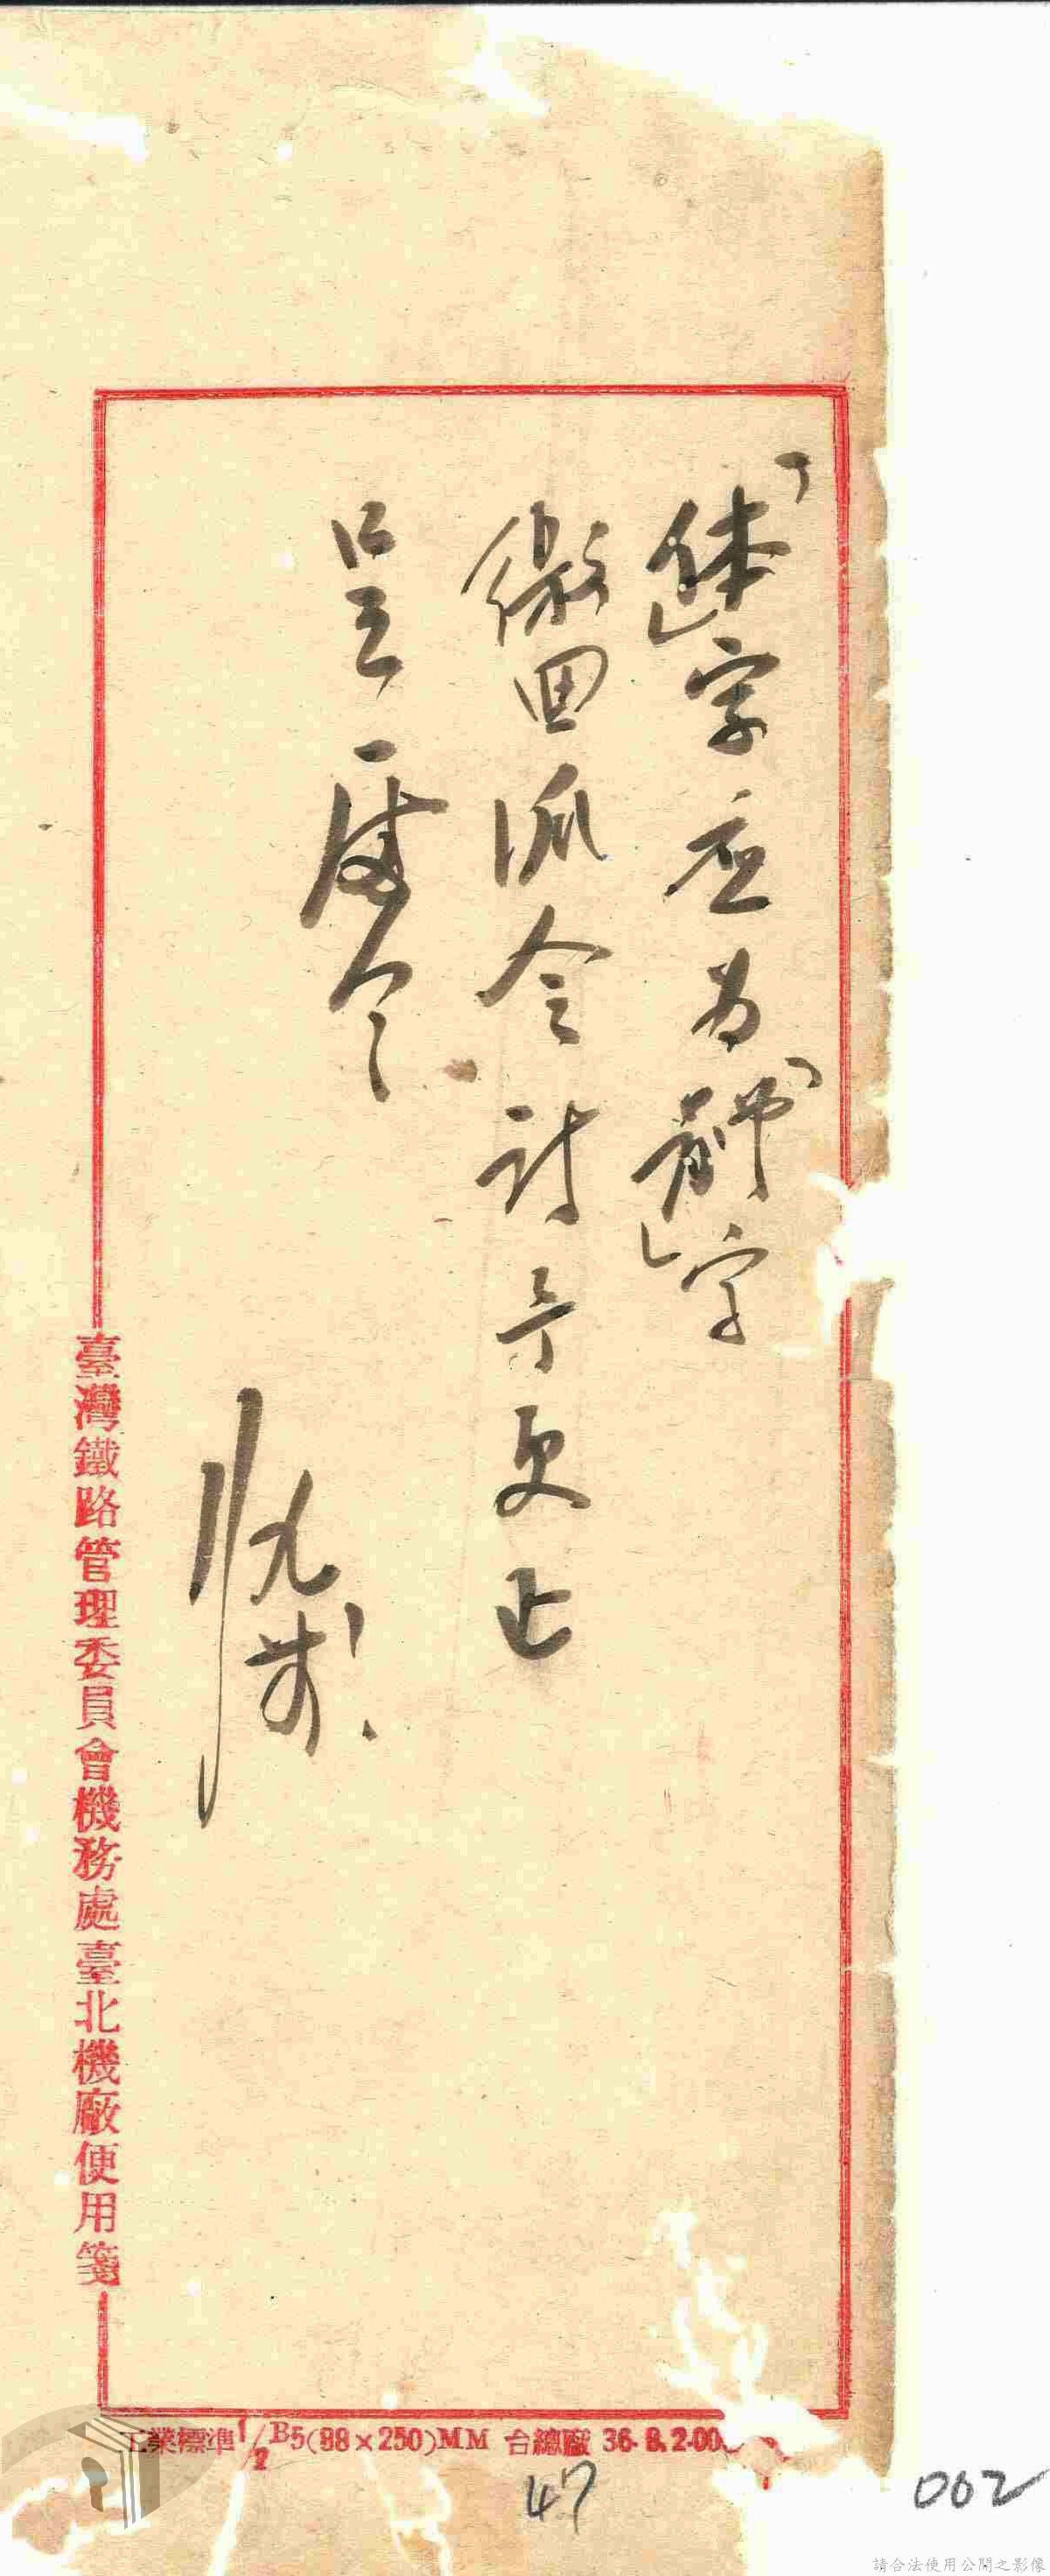 「体」字应为「解」字
繳回派令請予更正
呈 厰令
臺灣鐵路管理委員會機務處臺北機廠便用箋
工業標準1/2B5(88×250)MM 台總廠 36. 8. 2.00
47
002
請合法使用公開之影像